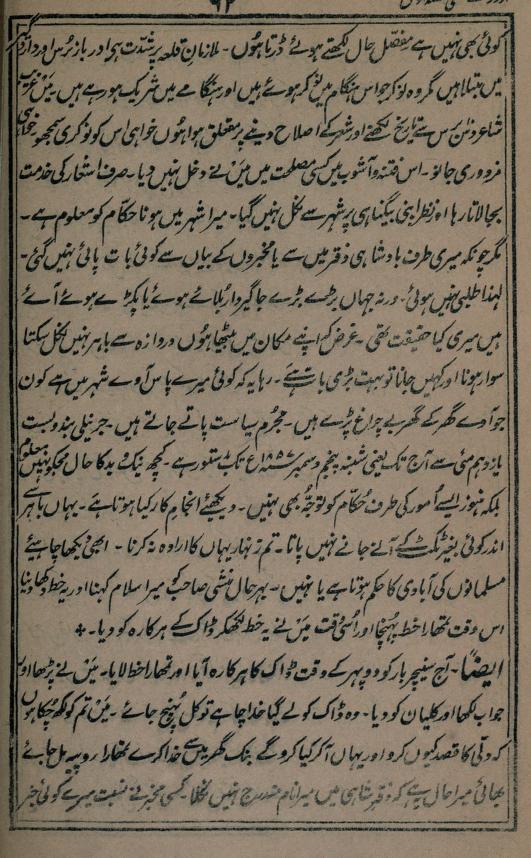 کوئی بھی نہیں ہے مفصل حال لکھتے ہوئے ڈرتا ہوں۔ ملازمانِ قلعہ پر شدّت ہی اور بازپرس اور داروگیر
میں مبتلا ہیں مگر وہ نوکر جو اس ہنگام میں نوکر ہوئے ہیں اور ہنگامے میں شریک ہو رہے ہیں۔ میں غریب
شاعر دس برس سے تاریخ لکھنے اور شعر کے اصلاح دینے پر متعلق ہوا ہوں خواہی اس کو نوکری سمجھو خواہی
مزدوری جانو۔ اس فتنہ و آشوب میں کسی مصلحت میں میں نے دخل نہیں دیا۔ صرف اشعار کی خدمت
بجا لاتا رہا اور نظر اپنی بیگناہی پر شہر سے نکل نہیں گیا۔ میرا شہر میں ہونا حکّام کو معلوم ہے۔
مگر چونکہ میری طرف بادشاہی دفتر میں سے یا مخبروں کے بیان سے کوئی بات پائی نہیں گئی۔
لہذا طلبی نہیں ہوئی۔ ورنہ جہاں بڑے بڑے جاگیردار بلائے ہوئے یا پکڑے ہوئے آئے
ہیں میری کیا حقیقت تھی۔ غرض کہ اپنے مکان میں بیٹھا ہوں دروازہ سے باہر نہیں نکل سکتا
سوار ہونا اور کہیں جانا تو بہت بڑی بات ہے۔ رہا یہ کہ کوئی میرے پاس آوے شہر میں ہے کون
جو آوے گھر کے گھر بے چراغ پڑے ہیں۔ مجرم سیاست پاتے جاتے ہیں۔ جرنیلی بندوبست
یازدہم مئی سے آج تک یعنی شنبہ پنجم دسمبر ۱۸۵۷ء تک بدستور ہے۔ کچھ نیک و بد کا حال مجکو نہیں معلوم
بلکہ ہنوز ایسے اُمور کی طرف حُکّام کو توجّہ بھی نہیں۔ دیکھئے انجام کار کیا ہوتا ہے۔ یہاں باہر سے
اندر کوئی بغیر ٹکٹ کے آنے جانے نہیں پاتا۔ تم زنہار یہاں کا ارادہ نہ کرنا۔ ابھی دیکھا چاہئیے
مسلمانوں کی آبادی کا حکم ہوتا ہے یا نہیں۔ بہرحال منشی صاحب کو میرا سلام کہنا اور یہ خط دکھا دینا
اس وقت تمھارا خط پہنچا اور اُسی وقت میں نے یہ خط لکھکر ڈاک کے ہرکارہ کو دیا۔
ایضًا۔ آج سنیچر بار کو دوپہر کے وقت ڈاک کا ہرکارہ آیا اور تمھارا خط لایا۔ میں نے پڑھا اور
جواب لکھا اور کلیان کو دیا۔ وہ ڈاک کو لے گیا خدا چاہے تو کل پہنچ جائے۔ میں تم کو لکھ چکا ہوں
کہ دلّی کا قصد کیوں کرو اور یہاں آکر کیا کروگے بنک گھر میں سے خدا کرے تمھارا روپیہ مل جائے
بھائی میرا حال یہ ہے کہ دفتر شاہی میں میرا نام مندرج نہیں نکلا۔ کسی مخبر نے نسبت میرے کوئی خبر